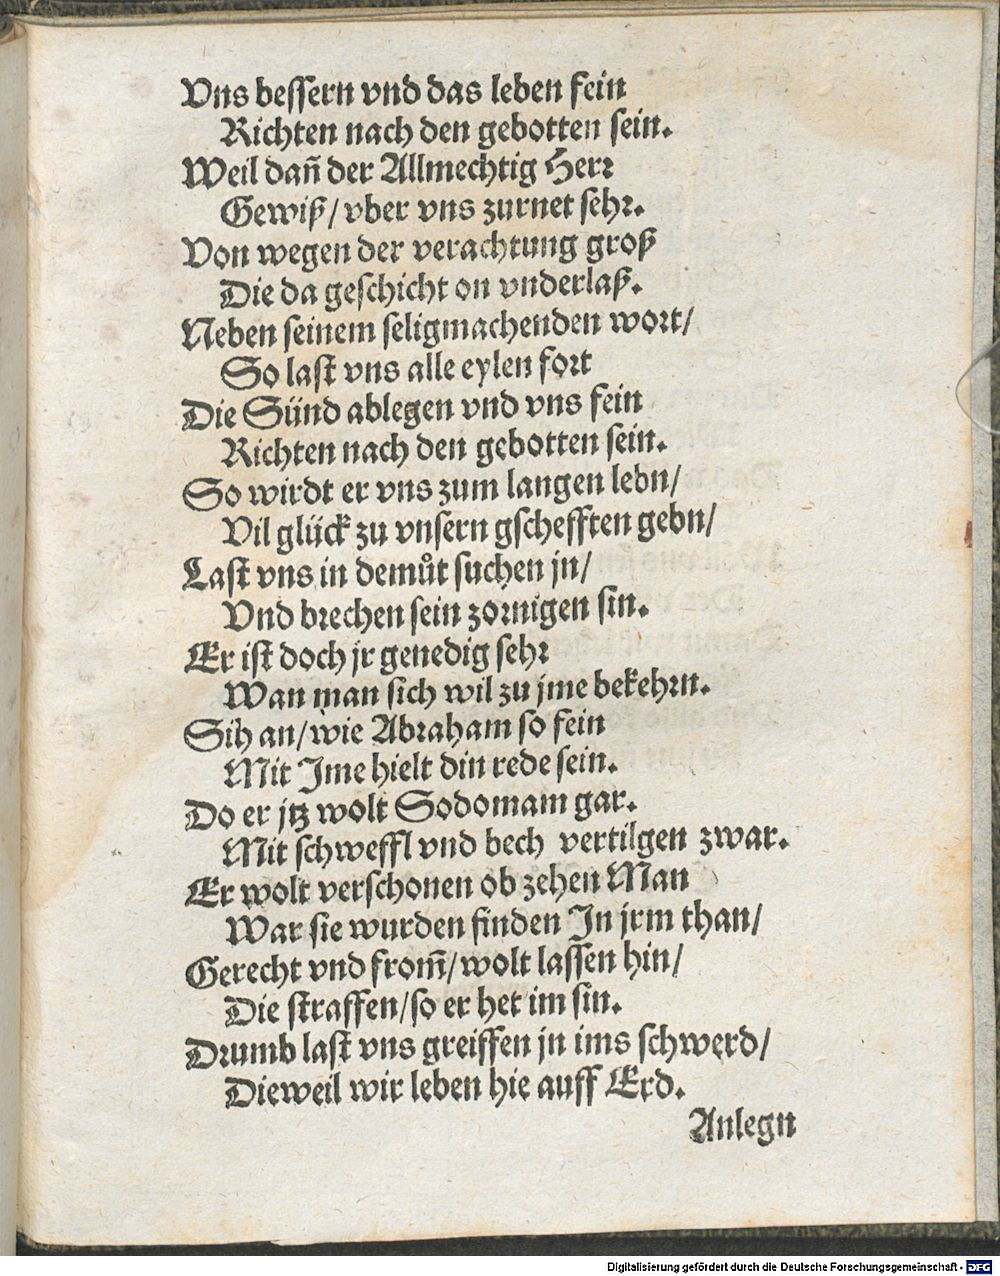 Vns bessern vnd das leben fein
Richten nach den gebotten sein.
Weil dañ der Allmechtig Herr
Gewiß/ vber vns zurnet sehr.
Von wegen der verachtung groß
Die da geschicht on vnderlaß.
Neben seinem seligmachenden wort/
So last vns alle eylen fort
Die Sünd ablegen vnd vns fein
Richten nach den gebotten sein.
So wirdt er vns zum langen lebn/
Vil glück zu vnsern gschefften gebn/
Last vns in demůt suchen jn/
Vnd brechen sein zornigen sin.
Er ist doch jr genedig sehr
Wan man sich wil zu jme bekehrn.
Sih an/ wie Abraham so fein
Mit Jme hielt din rede sein.
Do er jtz wolt Sodomam gar.
Mit schweffl vnd bech vertilgen zwar.
Er wolt verschonen ob zehen Man
War sie wurden finden In jrm than/
Gerecht vnd from̃/ wolt lassen hin/
Die straffen/ so er het im sin.
Drumb last vns greiffen jn ims schwerd/
Dieweil wir leben hie auff Erd.
Anlegn
Digitalisierung gefördert durch die Deutsche Forschungsgemeinschaft - DFG